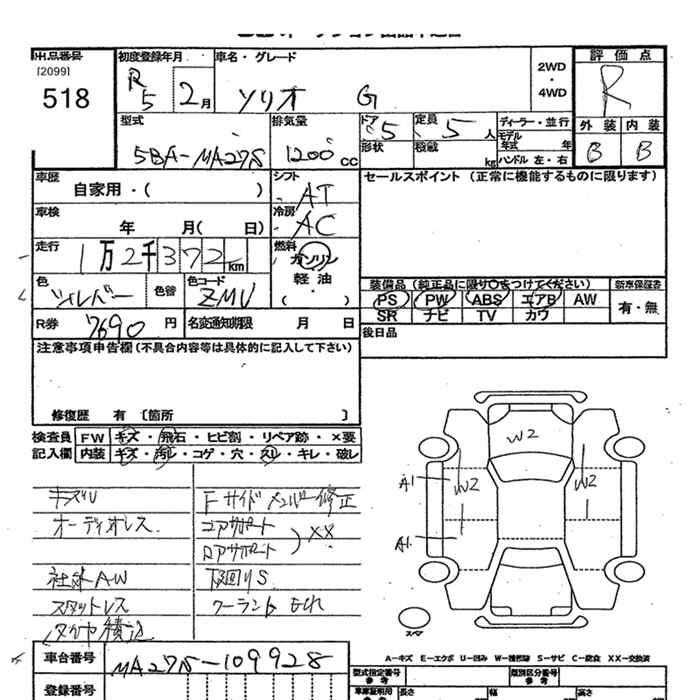 出品番号
[2099]
518
初度登録年月
R5 2月
車名・グレード
ソリオ G
2WD
・
4WD
評価点
R
外装 内装
B B
型式
5BA-MA27S
排気量
1200 cc
ドア 5
形状
定員 5 人
積載 kg
ディーラー・並行
モデル年式 年
ハンドル 左・右
車歴
自家用・( )
シフト
AT
セールスポイント(正常に機能するものに限ります)
車検
年 月( 日)
冷房
AC
走行
1万2千372 km
燃料
ガソリン
軽油
( ・ )
色
シルバー
色替
色コード
ZMV
装備品(純正品に限り○をつけてください)
新車保証書
PS PW ABS エアB AW
SR ナビ TV カワ
有・無
R券
7690 円
名変通知期限
月 日
後日品
注意事項申告欄(不具合内容等は具体的に記入して下さい)
修復歴 有 〔箇所 〕
検査員記入欄
FW キズ・飛石・ヒビ割・リペア跡・×要
内装 キズ・汚レ・コゲ・穴・スレ・キレ・破レ
キズU
オーディオレス
社外AW
スタットレス
タイヤ積込
Fサイドメンバー修正
コアサポート
ロアサポート
××
下回りS
クーラントもれ
W2
A1
W2
W2
A1
スペア
A－キズ E－エクボ U－凹み W－補修跡 S－サビ C－腐食 XX－交換済
車台番号
MA27S-109928
登録番号
型式指定番号
参考
類別区分番号
参考
車庫証明用
参考
長さ
幅
高さ